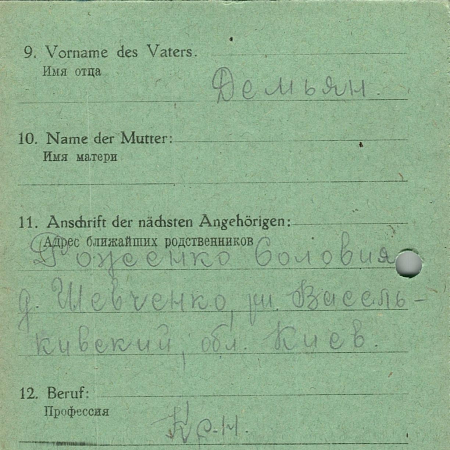 9. Vorname des Vaters.
Имя отца
Демьян.
10. Name der Mutter:
Имя матери
11. Anschrift der nächsten Angehörigen:
Адрес ближайших родственников
Соловия
д. Шевченко, рн Васель-
кивский, обл. Киев.
12. Beruf:
Профессия
Кр-н.